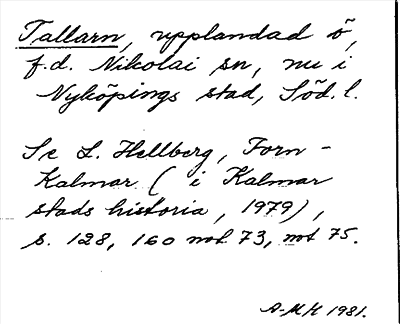 Tallarn, upplandad ö,
f.d. Nikolai sn, nu i
Nyköpings stad, Söd. l.
Se L. Hellberg, Forn-
Kalmar (i Kalmar
stads historia, 1979),
s. 128, 160 not 73, not 75.
A-MH 1981.